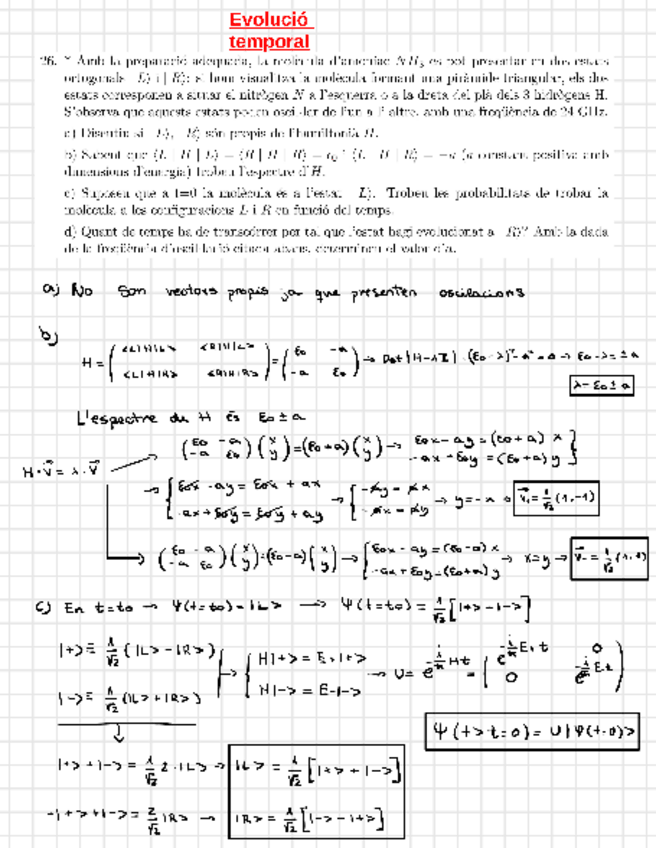 Evolució
temporal
26. * Amb la preparació adequada, la molècula d'amoníac NH₃ es pot presentar en dos estats
ortogonals |L⟩ i |R⟩: si hom visualitza la molècula formant una piràmide triangular, els dos
estats corresponen a situar el nitrògen N a l'esquerra o a la dreta del pla dels 3 hidrògens H.
S'observa que aquests estats poden oscil·lar de l'un a l'altre, amb una freqüència de 24 GHz.
a) Discutiu si |L⟩, |R⟩ són propis de l'hamiltonià H.
b) Sabent que ⟨L | H | L⟩ = ⟨R | H | R⟩ = ε₀ i ⟨L | H | R⟩ = −a (a constant positiva amb
dimensions d'energia) trobeu l'espectre d'H.
c) Suposeu que a t=0 la molècula és a l'estat |L⟩. Trobeu les probabilitats de trobar la
molècula a les configuracions L i R en funció del temps.
d) Quant de temps ha de transcórrer per tal que l'estat hagi evolucionat a |R⟩? Amb la dada
de la freqüència d'oscil·lació citada abans, determineu el valor d'a.
a) No són vectors propis ja que presenten oscilacions
b)
H = ( <L|H|L> <R|H|L> <L|H|R> <R|H|R> ) = ( ε₀ -a -a ε₀ ) → Det|H-λI| = (ε₀-λ)²-a²=0 → ε₀-λ=±a
λ=ε₀±a
L'espectre de H és ε₀±a
H·v⃗ = λ·v⃗ ( ε₀ -a -a ε₀ ) ( x y ) = (ε₀+a) ( x y ) → ε₀x-ay=(ε₀+a)x -ax+ε₀y=(ε₀+a)y }
→ { ε₀x-ay=ε₀x+ax -ax+ε₀y=ε₀y+ay → { -ay=ax -ax=ay → y=-x → v⃗₊=1/√2 (1,-1)
( ε₀ -a -a ε₀ ) ( x y ) = (ε₀-a) ( x y ) → { ε₀x-ay=(ε₀-a)x -ax+ε₀y=(ε₀+a)y → x=y → v⃗₋=1/√2 (1,1)
c) En t=t₀ → Ψ(t=t₀)=|L> → Ψ(t=t₀)=1/√2 [|+>-|->]
|+> ≡ 1/√2 (|L>-|R>) H|+> = E₊|+> → U = e^{-i/ħ Ht} = ( e^{-i/ħ E₊t} 0 0 e^{-i/ħ E₋t} )
|-> ≡ 1/√2 (|L>+|R>) H|-> = E₋|->
Ψ(t>t=0) = U|Ψ(t=0)>
|+>+|-> = 1/√2 2·|L> → |L> = 1/√2 [|+>+|->]
-|+>+|-> = 2/√2 |R> → |R> = 1/√2 [|->-|+>]